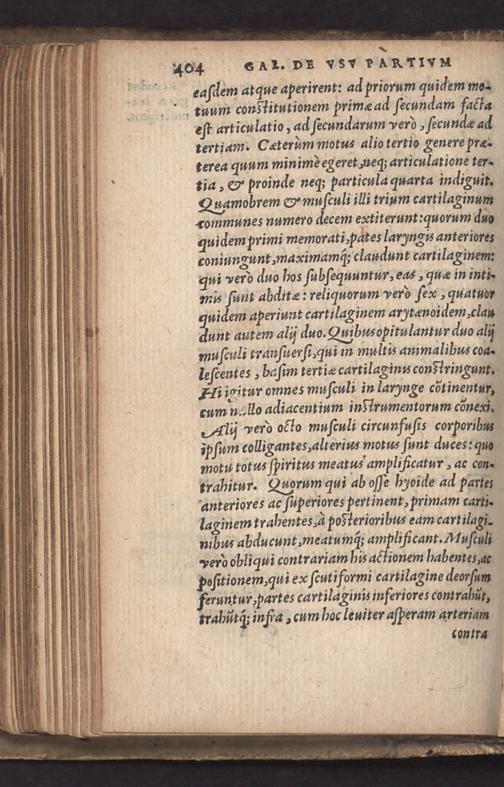 404 GAL. DE VSV PARTIVM
easdem atque aperirent: ad priorum quidem mo-
tuum constitutionem primæ ad secundam facta
est articulatio, ad secundarum verò, secundæ ad
tertiam. Cæterùm motus alio tertio genere præ-
terea quum minimè egeret, neq; articulatione ter-
tia, & proinde neq; particula quarta indiguit.
Quamobrem & musculi illi trium cartilaginum
communes numero decem extiterunt: quorum duo
quidem primi memorati, pātes laryngis anteriores
coniungunt, maximamq; claudunt cartilaginem:
qui verò duo hos subsequuntur, eas, quæ in inti-
mis sunt abditæ: reliquorum verò sex, quatuor
quidem aperiunt cartilaginem arytænoidem, clau
dunt autem alij duo. Quibus opitulantur duo alij
musculi transuersi, qui in multis animalibus coa-
lescentes, basim tertiæ cartilaginis constringunt.
Hi igitur omnes musculi in larynge cōtinentur,
cum nullo adiacentium instrumentorum cōnexi.
Alij verò octo musculi circunfusis corporibus
ipsum colligantes, alterius motus sunt duces: quo
motu totus spiritus meatus amplificatur, ac con-
trahitur. Quorum qui ab osse hyoide ad partes
anteriores ac superiores pertinent, primam carti-
laginem trahentes, à posterioribus eam cartilagi-
nibus abducunt, meatumq; amplificant. Musculi
verò obliqui contrariam his actionem habentes, ac
positionem, qui ex scutiformi cartilagine deorsum
feruntur, partes cartilaginis inferiores contrahūt,
trahūtq; infra, cum hoc leuiter asperam arteriam
contra